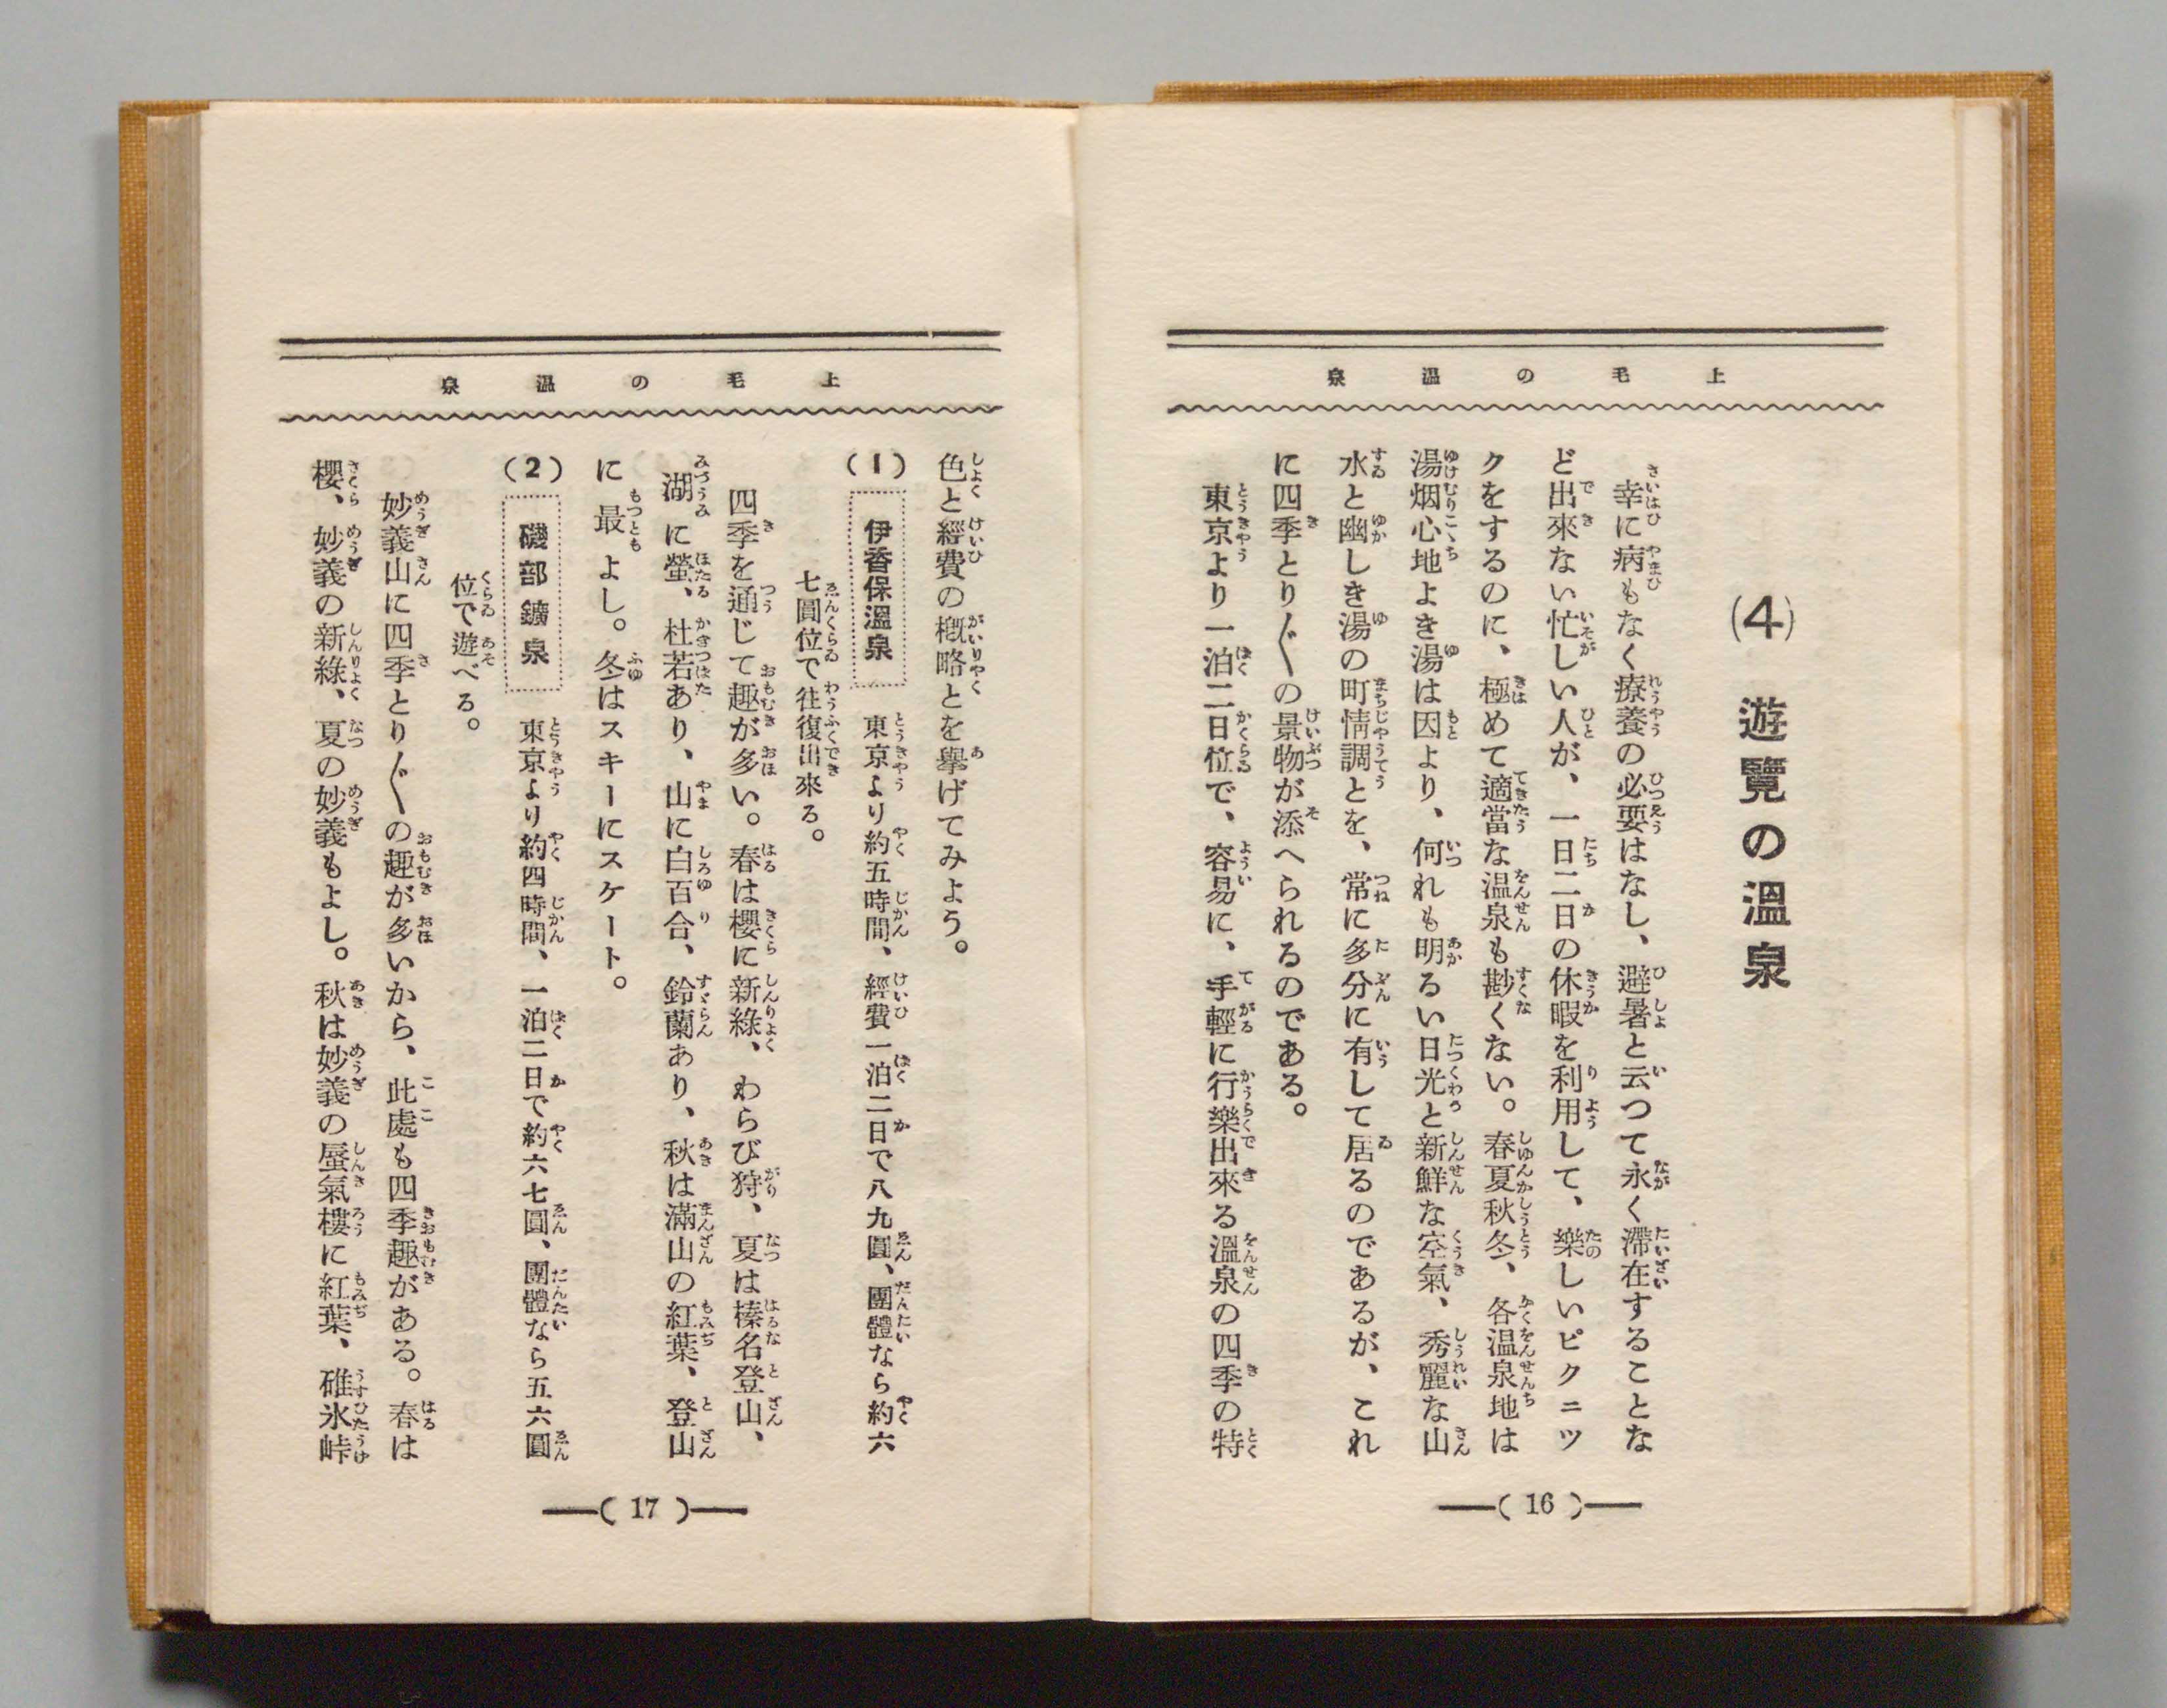 上毛の溫泉
(4) 遊覽の溫泉
幸に病もなく療養の必要はなし、避暑と云つて永く滯在することな
ど出來ない忙しい人が、一日二日の休暇を利用して、樂しいピクニツ
クをするのに、極めて適當な溫泉も尠くない。春夏秋冬、各溫泉地は
湯烟心地よき湯は因より、何れも明るい日光と新鮮な空氣、秀麗な山
水と幽しき湯の町情調とを、常に多分に有して居るのであるが、これ
に四季とり〴〵の景物が添へられるのである。
東京より一泊二日位で、容易に、手輕に行樂出來る溫泉の四季の特
(16)
上毛の溫泉
色と經費の槪略とを擧げてみよう。
(1) 伊香保溫泉 東京より約五時間、經費一泊二日で八九圓、團體なら約六
七圓位で往復出來る。
四季を通じて趣が多い。春は櫻に新綠、わらび狩、夏は榛名登山、
湖に螢、杜若あり、山に白百合、鈴蘭あり、秋は滿山の紅葉、登山
に最よし。冬はスキーにスケート。
(2) 磯部鑛泉 東京より約四時間、一泊二日で約六七圓、團體なら五六圓
位で遊べる。
妙義山に四季とり〴〵の趣が多いから、此處も四季趣がある。春は
櫻、妙義の新綠、夏の妙義もよし。秋は妙義の蜃氣樓に紅葉、碓氷峠
(17)